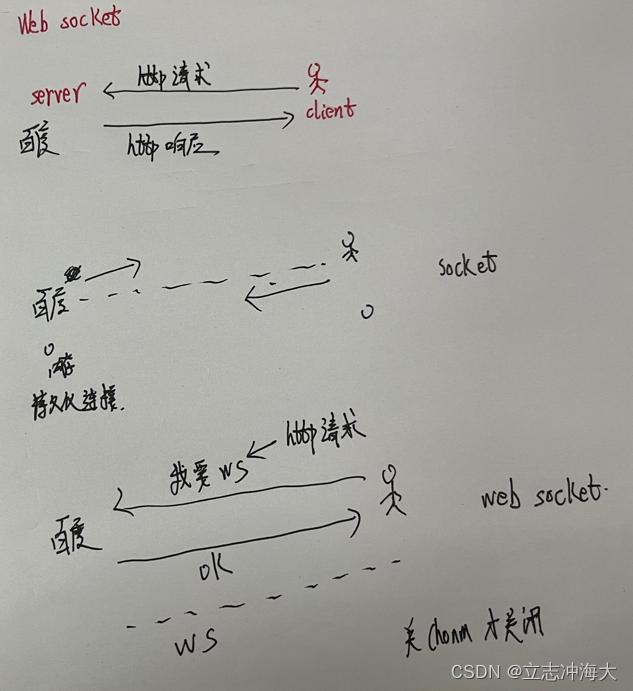 Web socket
http 请求
server
client
百度
http 响应
百度
socket
内存
持久化连接.
http 请求
我要 WS
web socket.
百度
OK
WS
关 Chonm 才关闭
CSDN @立志冲海大